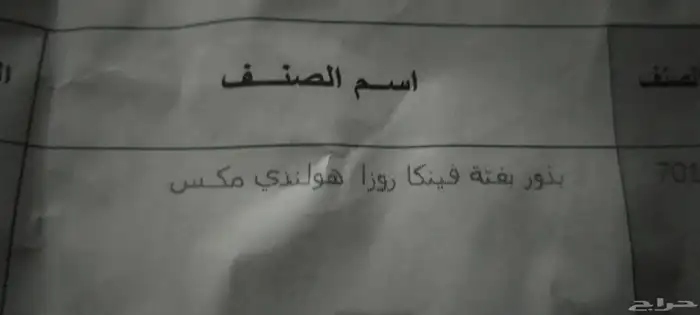 اسم الصنف
بذور بفتة فينكا روزا هولندي مكس
701
حراج